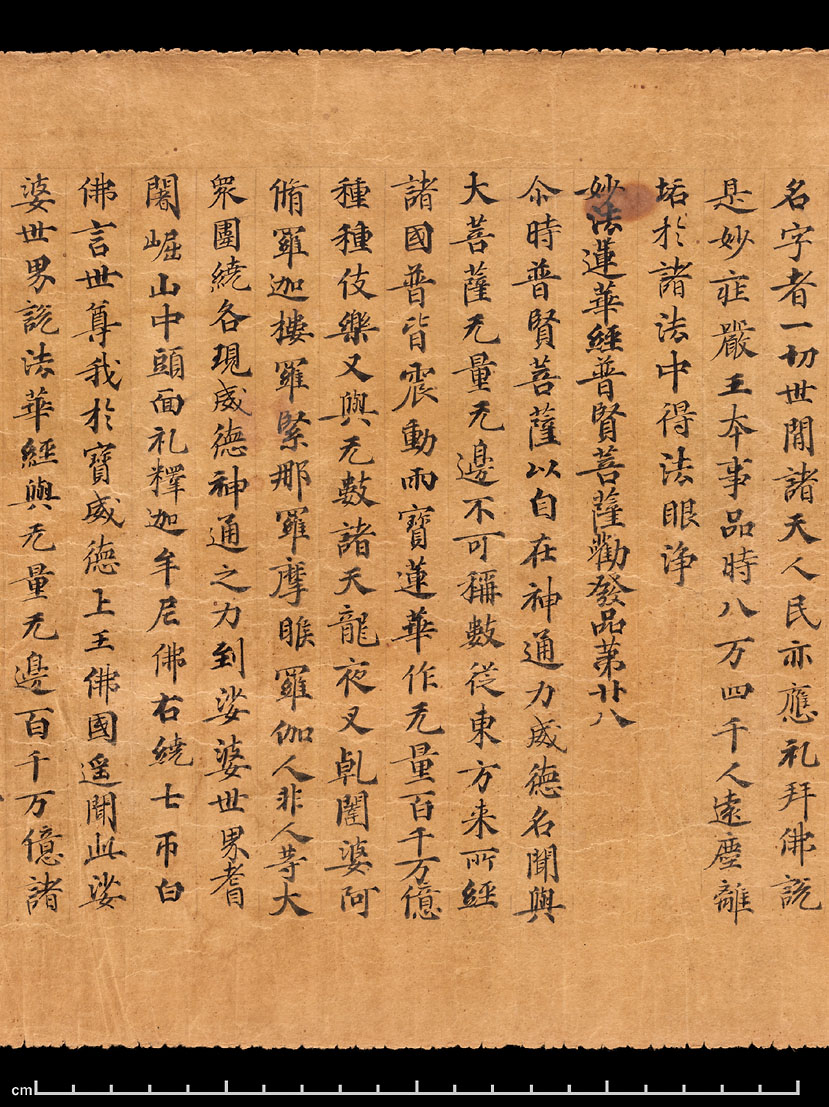 名字者一切世間諸天人民亦應礼拜佛說
是妙疘嚴王本事品時八万四千人遠塵離
垢於諸法中得法眼淨
妙法蓮華經普賢菩薩勸發品第廿八
尒時普賢菩薩以自在神通力威德名聞與
大菩薩无量无邊不可稱數從東方来所經
諸國普皆震動雨寶蓮華作无量百千万億
種種伎樂又與无數諸天龍夜叉乹闥婆阿
脩羅迦樓羅緊那羅摩睺羅伽人非人等大
衆圍繞各現威德神通之力到娑婆世界耆
闍崛山中頭面礼釋迦牟尼佛右繞七帀白
佛言世尊我於寶威德上王佛國遥聞此娑
婆世界說法華經與无量无邊百千万億諸
cm